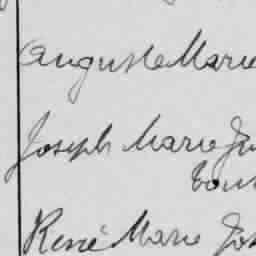 Auguste Marie
Joseph Marie
René Marie Jos